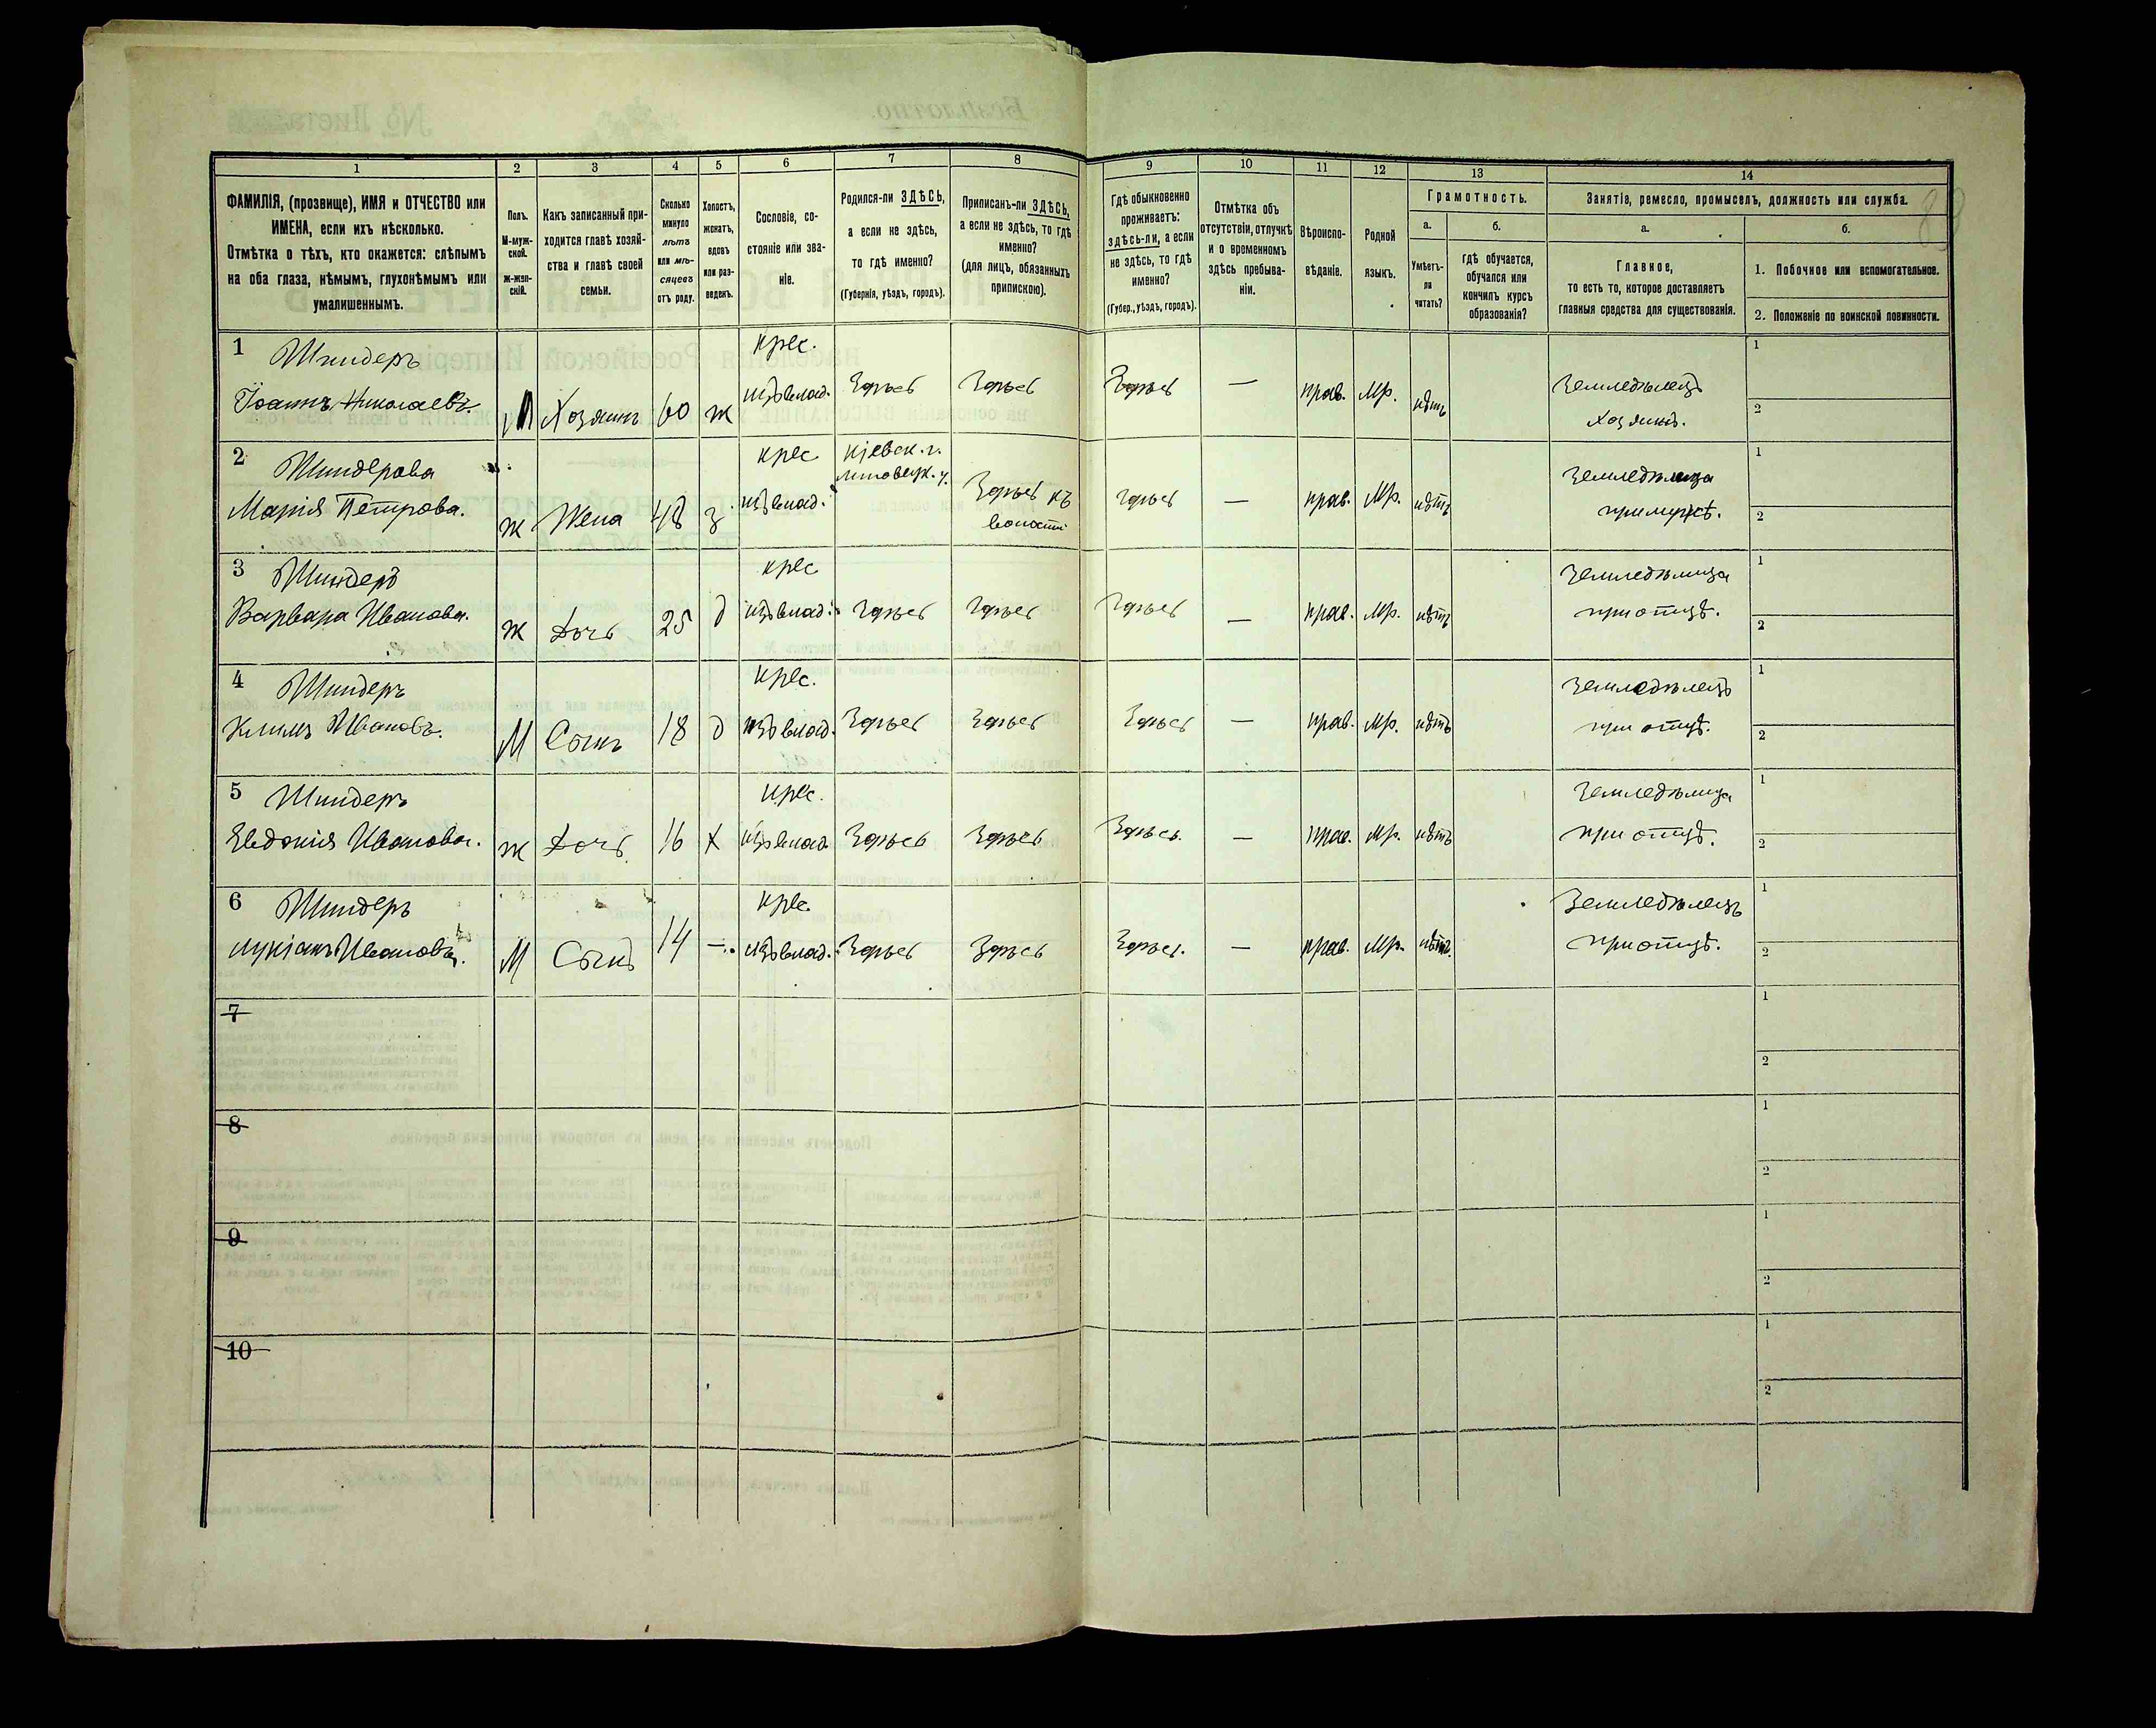 1 2 3 4 5 6 7 8 9 10 11 12 13 14
ФАМИЛІЯ, (прозвище), ИМЯ и ОТЧЕСТВО или
ИМЕНА, если ихъ нѣсколько.
Отмѣтка о тѣхъ, кто окажется: слѣпымъ
на оба глаза, нѣмымъ, глухонѣмымъ или
умалишеннымъ.
Полъ.
М-муж-
ской.
ж-жен-
скій.
Какъ записанный при-
ходится главѣ хозяй-
ства и главѣ своей
семьи.
Сколько
минуло
лѣтъ
или мѣ-
сяцевъ
отъ роду.
Холостъ,
женатъ,
вдовъ
или раз-
веденъ.
Сословіе, со-
стояніе или зва-
ніе.
Родился-ли ЗДѢСЬ,
а если не здѣсь,
то гдѣ именно?
(Губернія, уѣздъ, городъ).
Приписанъ-ли ЗДѢСЬ,
а если не здѣсь, то гдѣ
именно?
(для лицъ, обязанныхъ
припискою).
Гдѣ обыкновенно
проживаетъ:
здѣсь-ли, а если
не здѣсь, то гдѣ
именно?
(Губер., уѣздъ, городъ).
Отмѣтка объ
отсутствіи, отлучкѣ
и о временномъ
здѣсь пребыва-
ніи.
Вѣроиспо-
вѣданіе.
Родной
языкъ.
Грамотность.
а.
Умѣетъ-
ли
читать?
б.
гдѣ обучается,
обучался или
кончилъ курсъ
образованія?
Занятіе, ремесло, промыселъ, должность или служба.
а.
Главное,
то есть то, которое доставляетъ
главныя средства для существованія.
б.
1. Побочное или вспомогательное.
2. Положеніе по воинской повинности.
1 Шиндеръ крес. 1
Іоаннъ Николаевъ. М Хозяинъ 60 ж изъ влад. Здѣсь Здѣсь Здѣсь — прав. Мр. нѣтъ Земледѣлецъ
хозяинъ. 2
2 Шиндерова крес Кіевск. г. Земледѣлица 1
Марія Петрова. ж Жена 48 з изъ влад. Здѣсь къ волости здѣсь — прав. Мр. нѣтъ при мужѣ. 2
3 Шиндеръ крес Земледѣлица 1
Варвара Иванова. ж Дочь 25 д изъ влад. Здѣсь Здѣсь Здѣсь — прав. Мр. нѣтъ при отцѣ. 2
4 Шиндеръ крес. Земледѣлецъ 1
Климъ Ивановъ. М Сынъ 18 д изъ влад. Здѣсь Здѣсь Здѣсь — прав. Мр. нѣтъ при отцѣ. 2
5 Шиндеръ крес. Земледѣлица 1
Евдокія Иванова. ж Дочь 16 х изъ влад Здѣсь Здѣсь Здѣсь. — прав. Мр. нѣтъ при отцѣ. 2
6 Шиндеръ крес. Земледѣлецъ 1
Лукіанъ Ивановъ. М Сынъ 14 — изъ влад. Здѣсь Здѣсь Здѣсь. — прав. Мр. нѣтъ. при отцѣ. 2
7 1
2
8 1
2
9 1
2
10 1
2